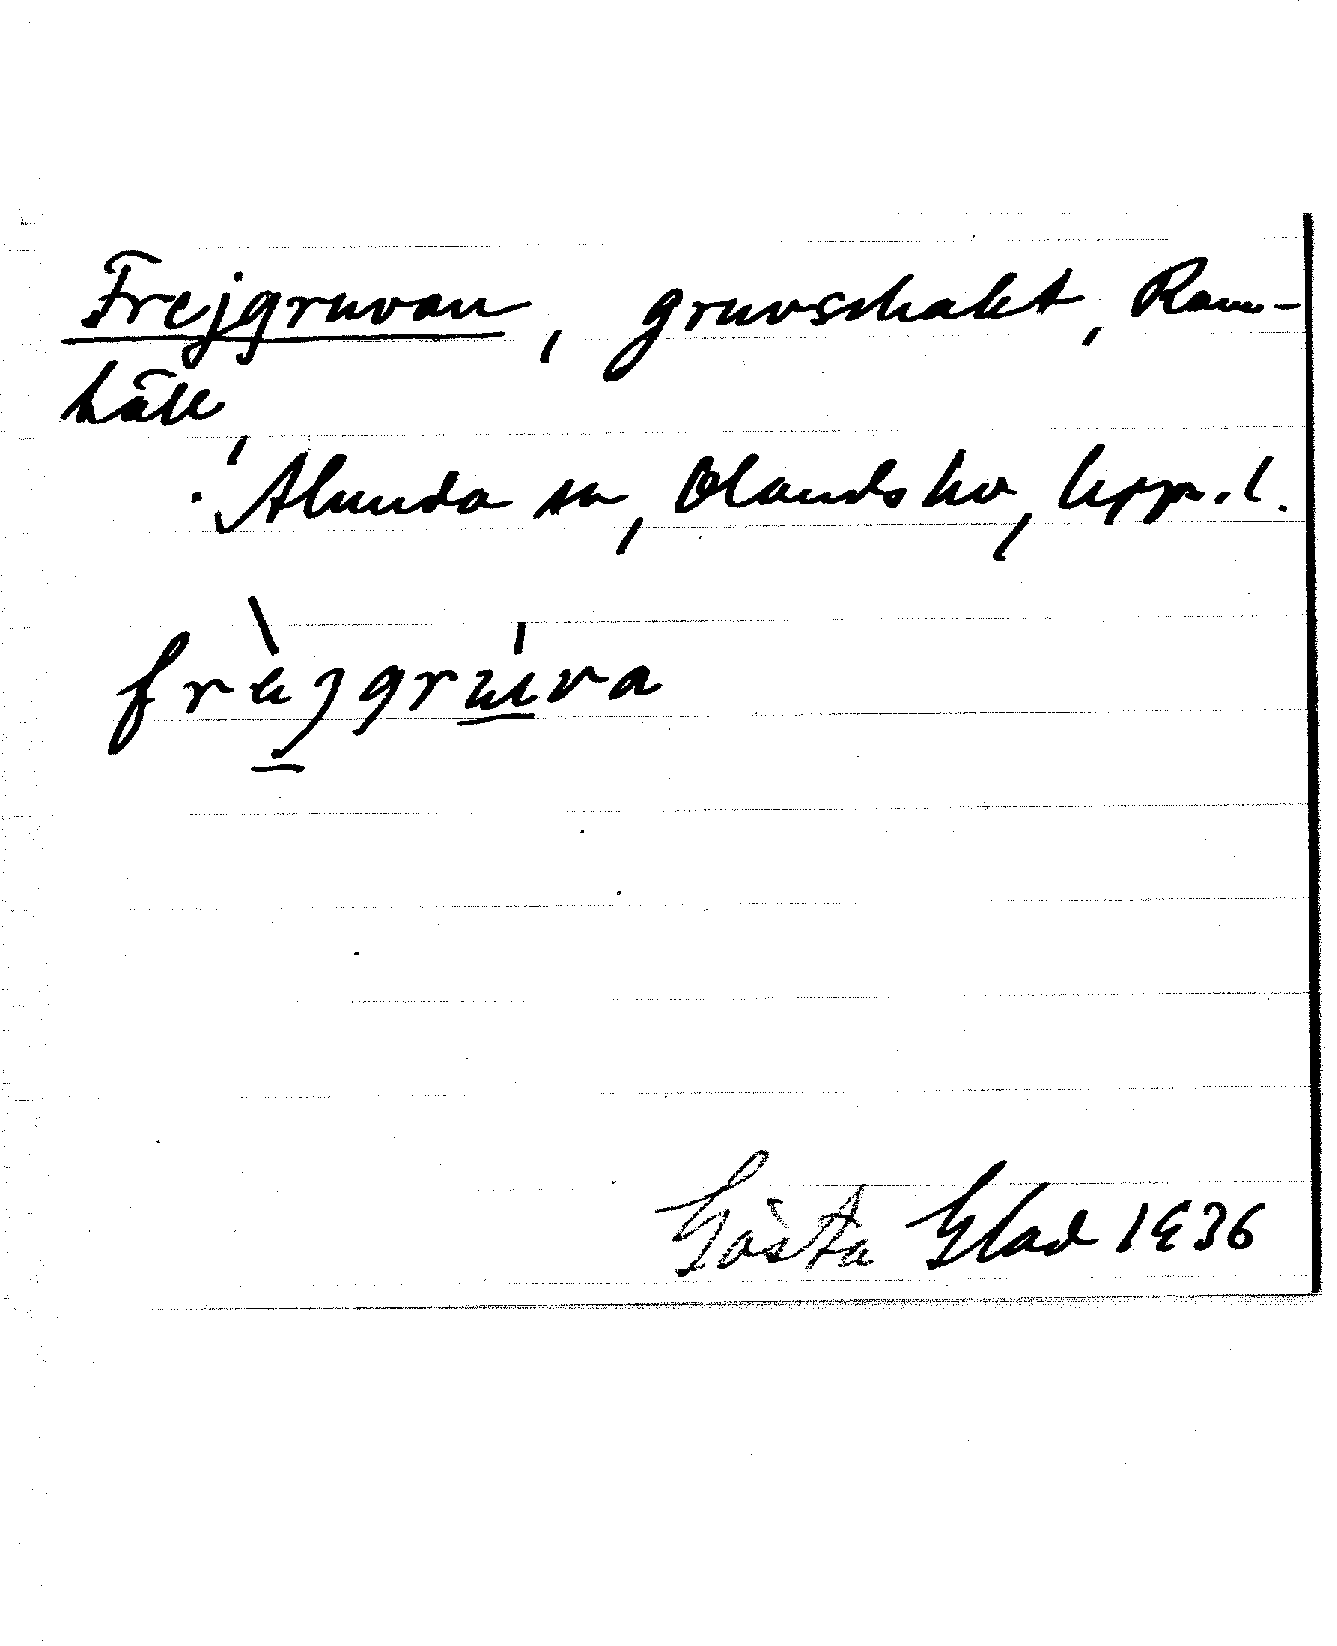 Frejgruvan, gruvschakt, Ram-
häll,
Alunda sn, Olands hd, Uppl.
Gösta Glad 1936